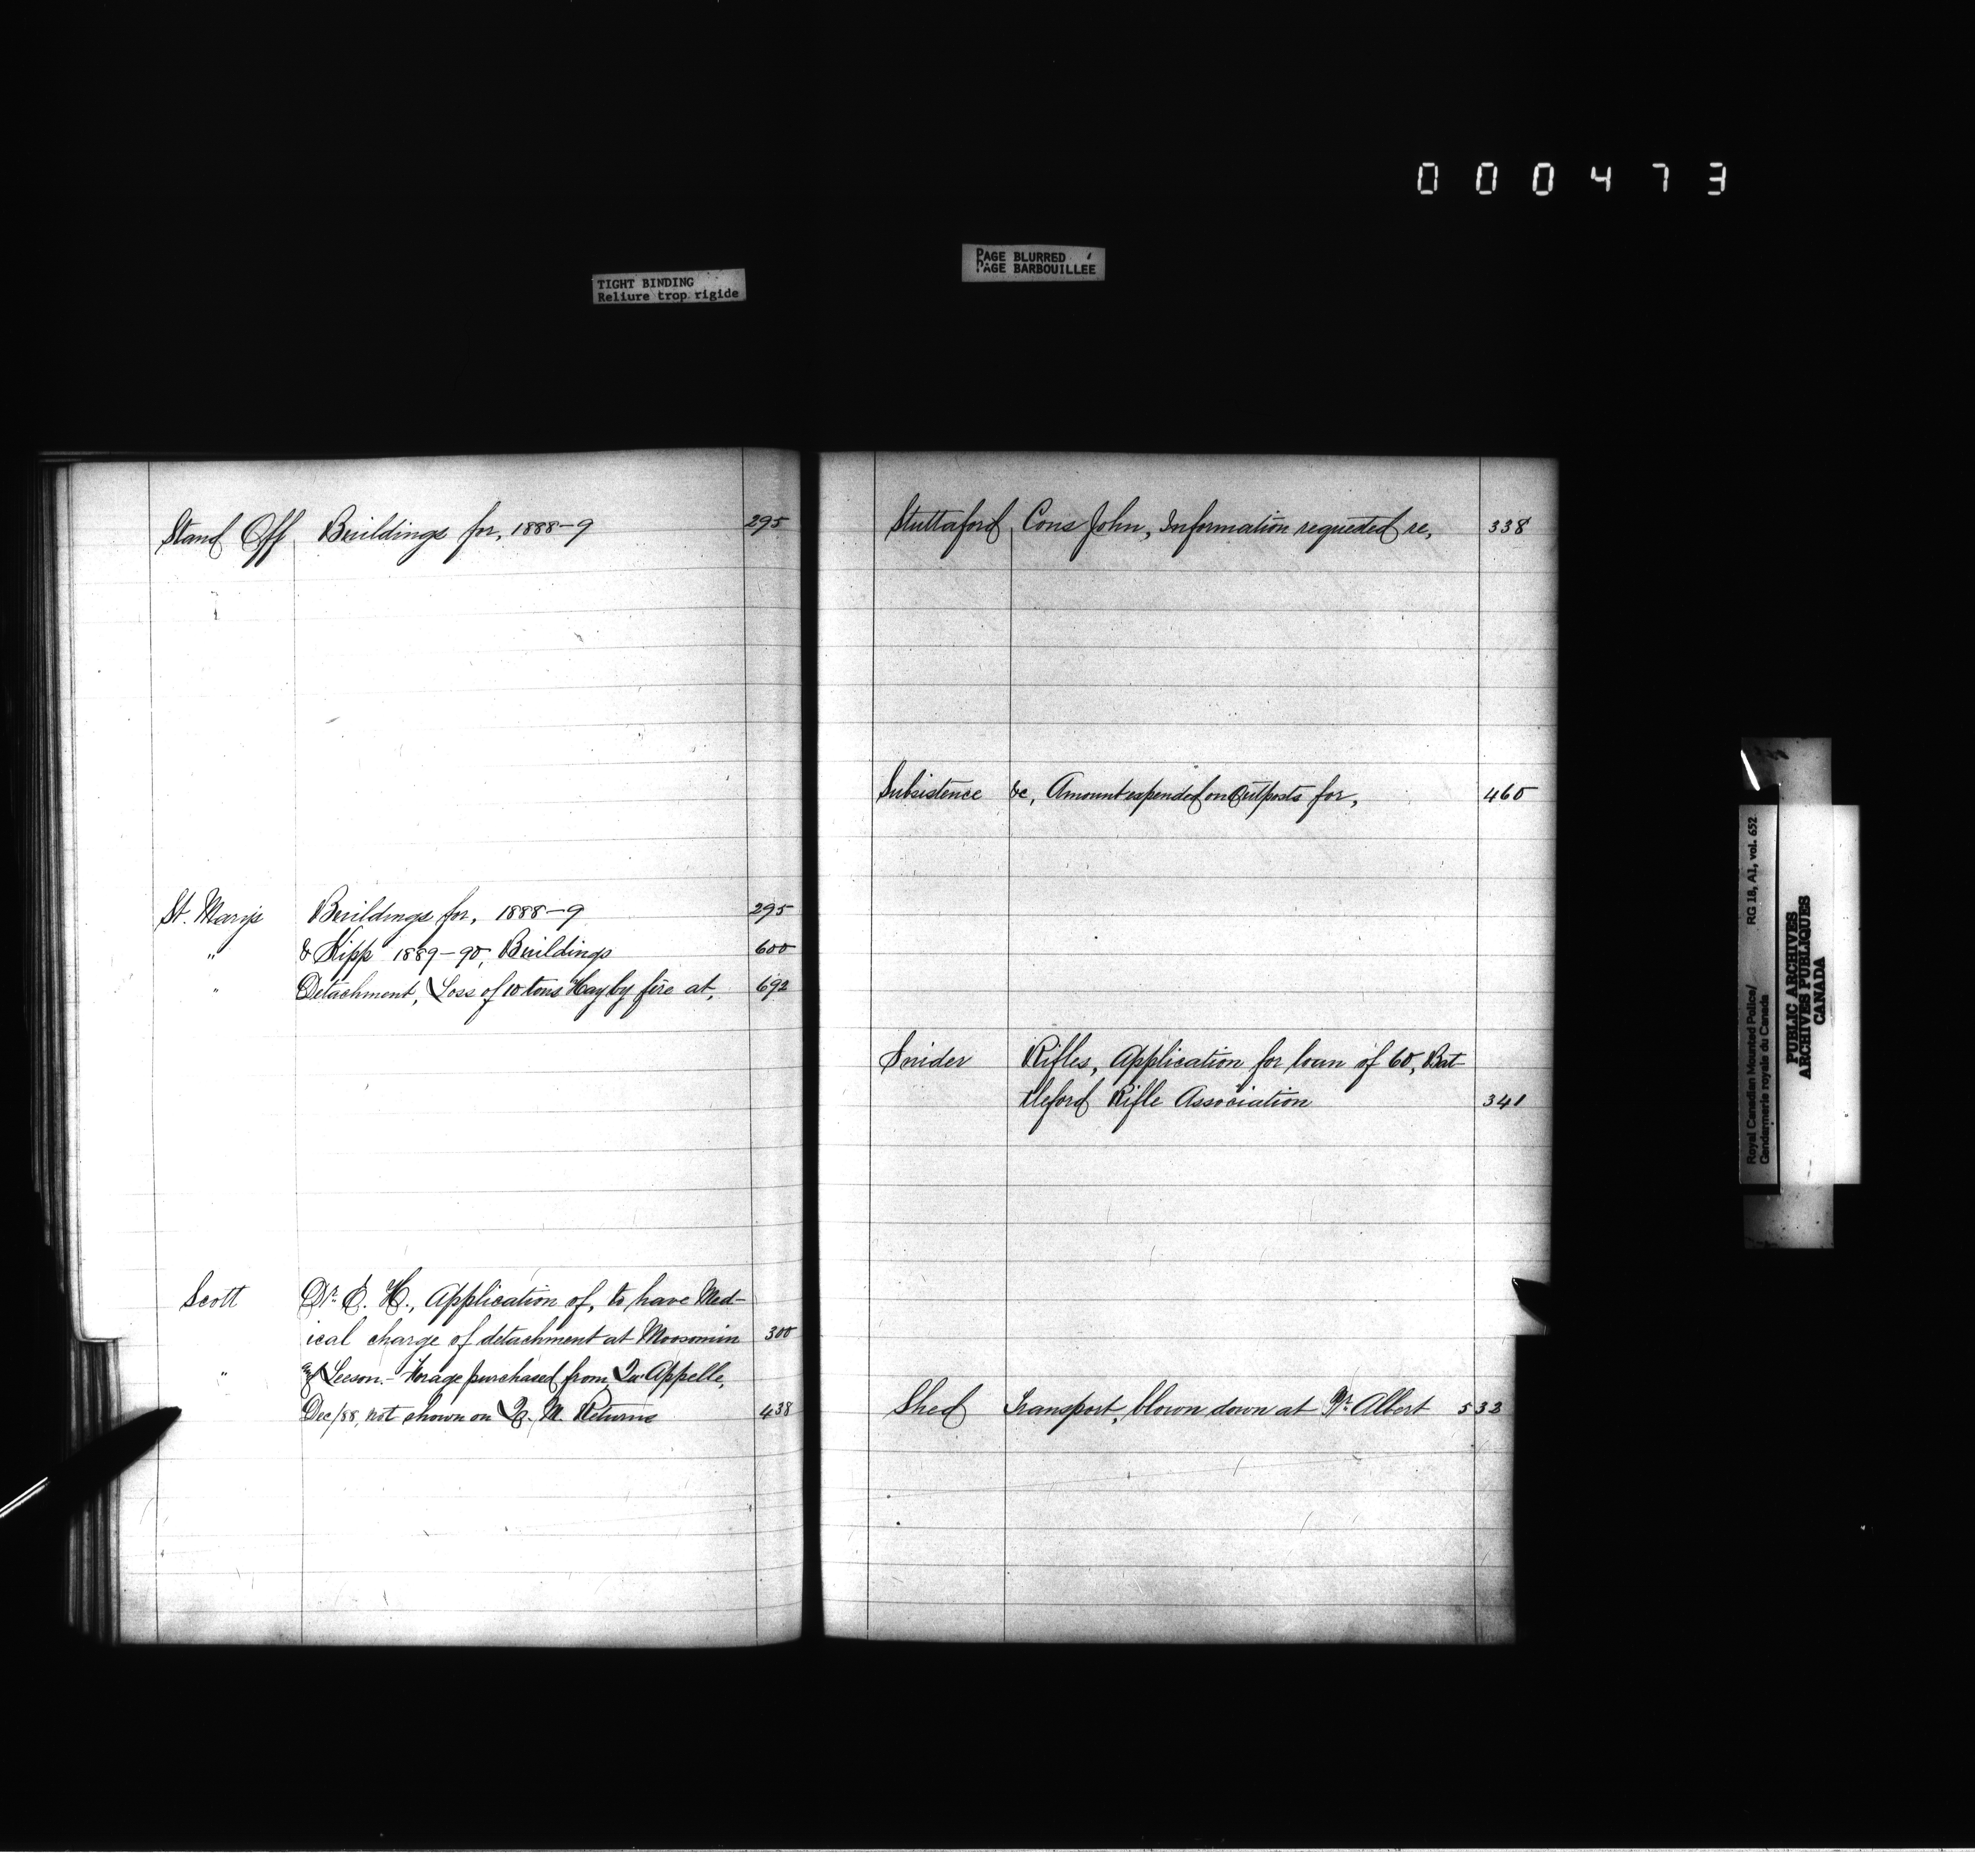 000473
TIGHT BINDING
Reliure trop rigide
PAGE BLURRED
PAGE BARBOUILLÉE
Stand Off Buildings for, 1888-9 295
St. Marys Buildings for, 1888-9 295
" & Kipp 1889-90, Buildings 600
" Detachment, Loss of 10 tons Hay by fire at, 692
Scott Dr. E. H., Application of, to have Med-
ical charge of detachment at Moosomin 300
" & Leeson - Forage purchased from, Qu'Appelle,
Dec/88, not shown on Q. M. Returns 438
Stuttaford, Cons John, Information requested re, 338
Subsistence &c, Amount expended on Outposts for, 460
Snider Rifles, Application for loan of 60, Bat
tleford Rifle Association 341
Shed Transport, blown down at Pr. Albert 532
Royal Canadian Mounted Police/ RG 18, A1, vol. 652
Gendarmerie royale du Canada
PUBLIC ARCHIVES
ARCHIVES PUBLIQUES
CANADA